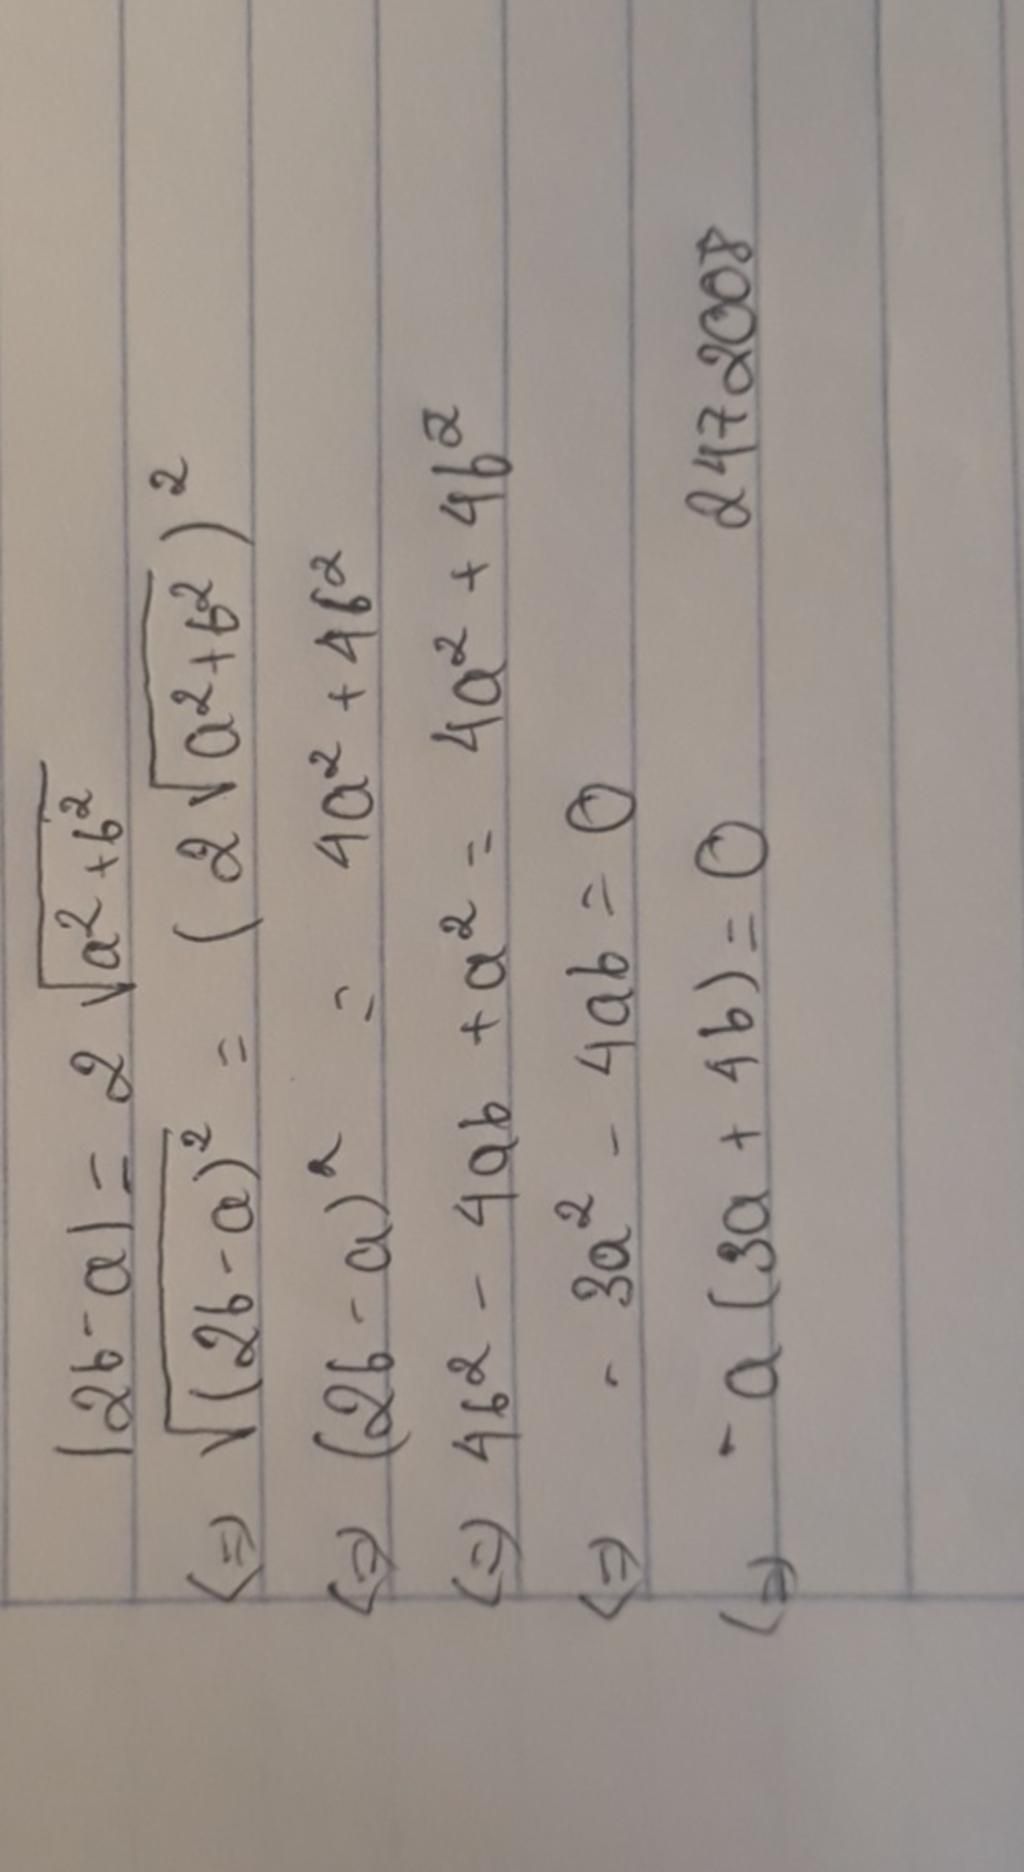 |2b-a| = 2 √(a²+b²)
(=) √(2b-a)² = (2√(a²+b²))²
(=) (2b-a)² = 4a² + 4b²
(=) 4b² - 4ab + a² = 4a² + 4b²
(=) - 3a² - 4ab = 0
(=) - a(3a + 4b) = 0 2472008